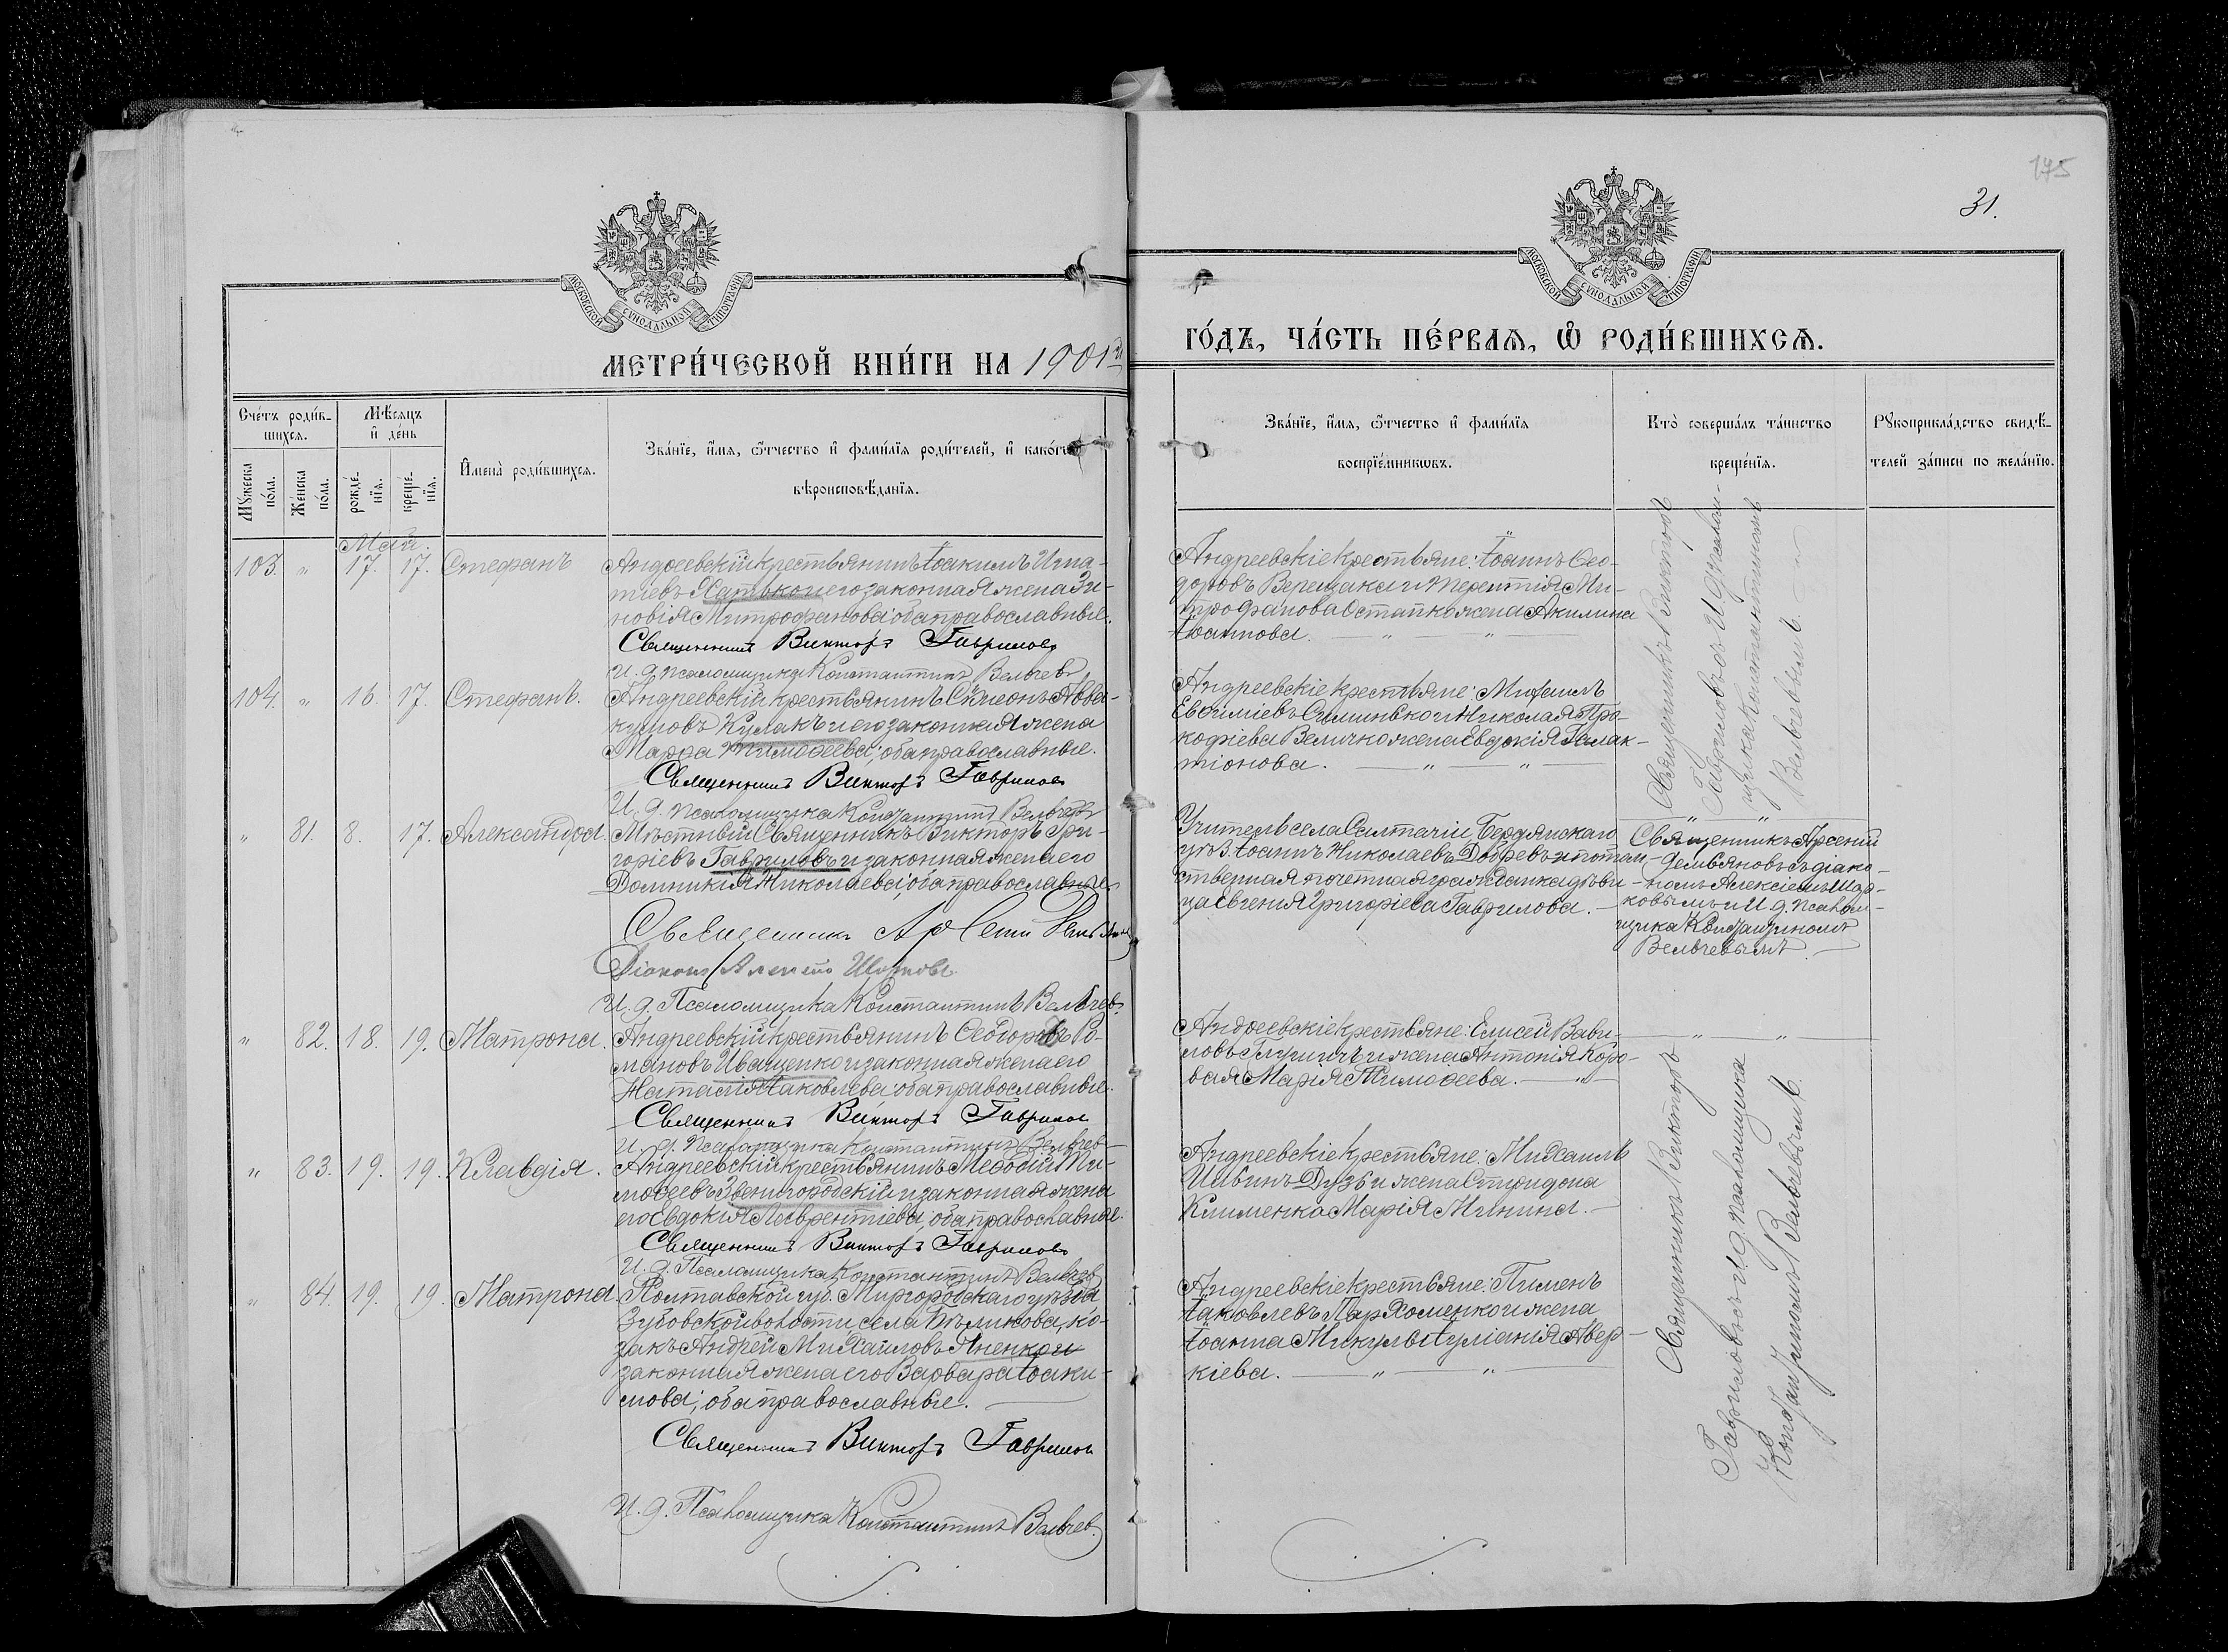 175
31.
МОСКОВСКОЙ СѴНОДАЛЬНОЙ ТИПОГРАФІИ
МОСКОВСКОЙ СѴНОДАЛЬНОЙ ТИПОГРАФІИ
МЕТРИ́ЧЕСКОЙ КНИ́ГИ НА 1901й
ГО́ДЪ, ЧА́СТЬ ПЕ́РВАѦ, Ѽ РОДИ́ВШИХСѦ.
Сче́тъ роди́в-
шихся.
Мѣ́сяцъ
и҆ де́нь
Мꙋ́жеска по́ла.
Же́нска по́ла.
рожде́-
нїя.
креще́-
нїя.
И҆мена̀ роди́вшихся.
Зва́нїе, и҆́мя, ѻ҆́тчество и҆ фами́лїя роди́телей, и҆ како́гѡ
вѣроисповѣ́данїя.
Зва́нїе, и҆́мя, ѻ҆́тчество и҆ фами́лїя
воспрїе́мникѡвъ.
Кто̀ соверша́лъ та́инство
креще́нїя.
Рꙋкоприкла́дство свидѣ́-
телей за́писи по жела́нїю.
Май.
103. " 17. 17. Стефанъ
Андреевскій крестьянинъ Іоакимъ Игна-
тіевъ Хатько и его законная жена Зи-
новія Митрофанова; оба православные.
Священникъ Викторъ Гавриловъ
И. д. псаломщика Константинъ Вельчевъ
Андреевскіе крестьяне: Іоаннъ Ѳео-
доровъ Верещака и Терентія Ми-
трофанова Остапко жена Акилина
Іоаннова. " "
Священникъ Викторъ
Гавриловъ съ И. д. псалом-
щика Константиномъ
Вельчевымъ.
104. " 16. 17. Стефанъ.
Андреевскій крестьянинъ Сѵмеонъ Авва-
кумовъ Кулакъ и его законная жена
Марѳа Тимоѳеева; оба православные.
Священникъ Викторъ Гавриловъ
И. д. псаломщика Константинъ Вельчевъ
Андреевскіе крестьяне: Михаилъ
Евѳиміевъ и Николая Про-
кофіева Величко жена Евдокія Галак-
тіонова. " "
" 81. 8. 17. Александра.
Мѣстный Священникъ Викторъ Гри-
горіевъ Гавриловъ и законная жена его
Домникія Николаева; оба православные.
Священникъ Арсеній
Діаконъ Алексій
И. д. Псаломщика Константинъ Вельчевъ.
Учитель села Салтачіи, Бердянскаго
уѣз. Іоаннъ Николаевъ Добревъ и потом-
ственная почетная гражданка дѣви-
ца Евгенія Григоріева Гаврилова.
Священникъ Арсеній
Демьяновъ съ діако-
номъ Алексіемъ
и И. д. псалом-
щика Константиномъ
Вельчевымъ.
" 82. 18. 19. Матрона.
Андреевскій крестьянинъ Ѳеодоръ Ро-
мановъ Иващенко и законная жена его
Наталія Іаковлева; оба православные.
Священникъ Викторъ Гавриловъ
И. д. псаломщика Константинъ Вельчевъ
Андреевскіе крестьяне: Елисей Вави-
ловъ и жена Антонія Коро-
вая Марія Тимоѳеева. "
" "
Священникъ Викторъ
Гавриловъ съ И. д. псаломщика
Константиномъ Вельчевымъ.
" 83. 19. 19. Клавдія.
Андреевскій крестьянинъ Меѳодій Ти-
моѳеевъ Звенигородскій и законная жена
его Евдокія Лаврентіева; оба православные.
Священникъ Викторъ Гавриловъ
И. д. Псаломщика Константинъ Вельчевъ
Андреевскіе крестьяне: Михаилъ
Дузь и жена Спиридона
Клименка Марія Минина.
" 84. 19. 19. Матрона.
Полтавской губ. Миргородскаго уѣзда
Зубовской волости, села Бѣликова, ко-
закъ Андрей Михаиловъ Гненко и
законная жена его Варвара Іоаки-
мова; оба православные.
Священникъ Викторъ Гавриловъ
И. д. Псаломщика Константинъ Вельчевъ.
Андреевскіе крестьяне: Пименъ
Іаковлевъ Пархоменко и жена
Іоанна Микулы Іуліанія Авер-
кіева. " "